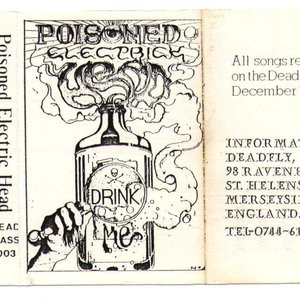 Poisoned Electric Head
EAD
ASS
003
POISONED
ELECTRICK
HEAD
DRINK
Me
All songs re
on the Dead
December
INFORMAT
DEADFLY,
98 RAVENH
ST. HELENS
MERSEYSI
ENGLAND.
TEL-0744-61